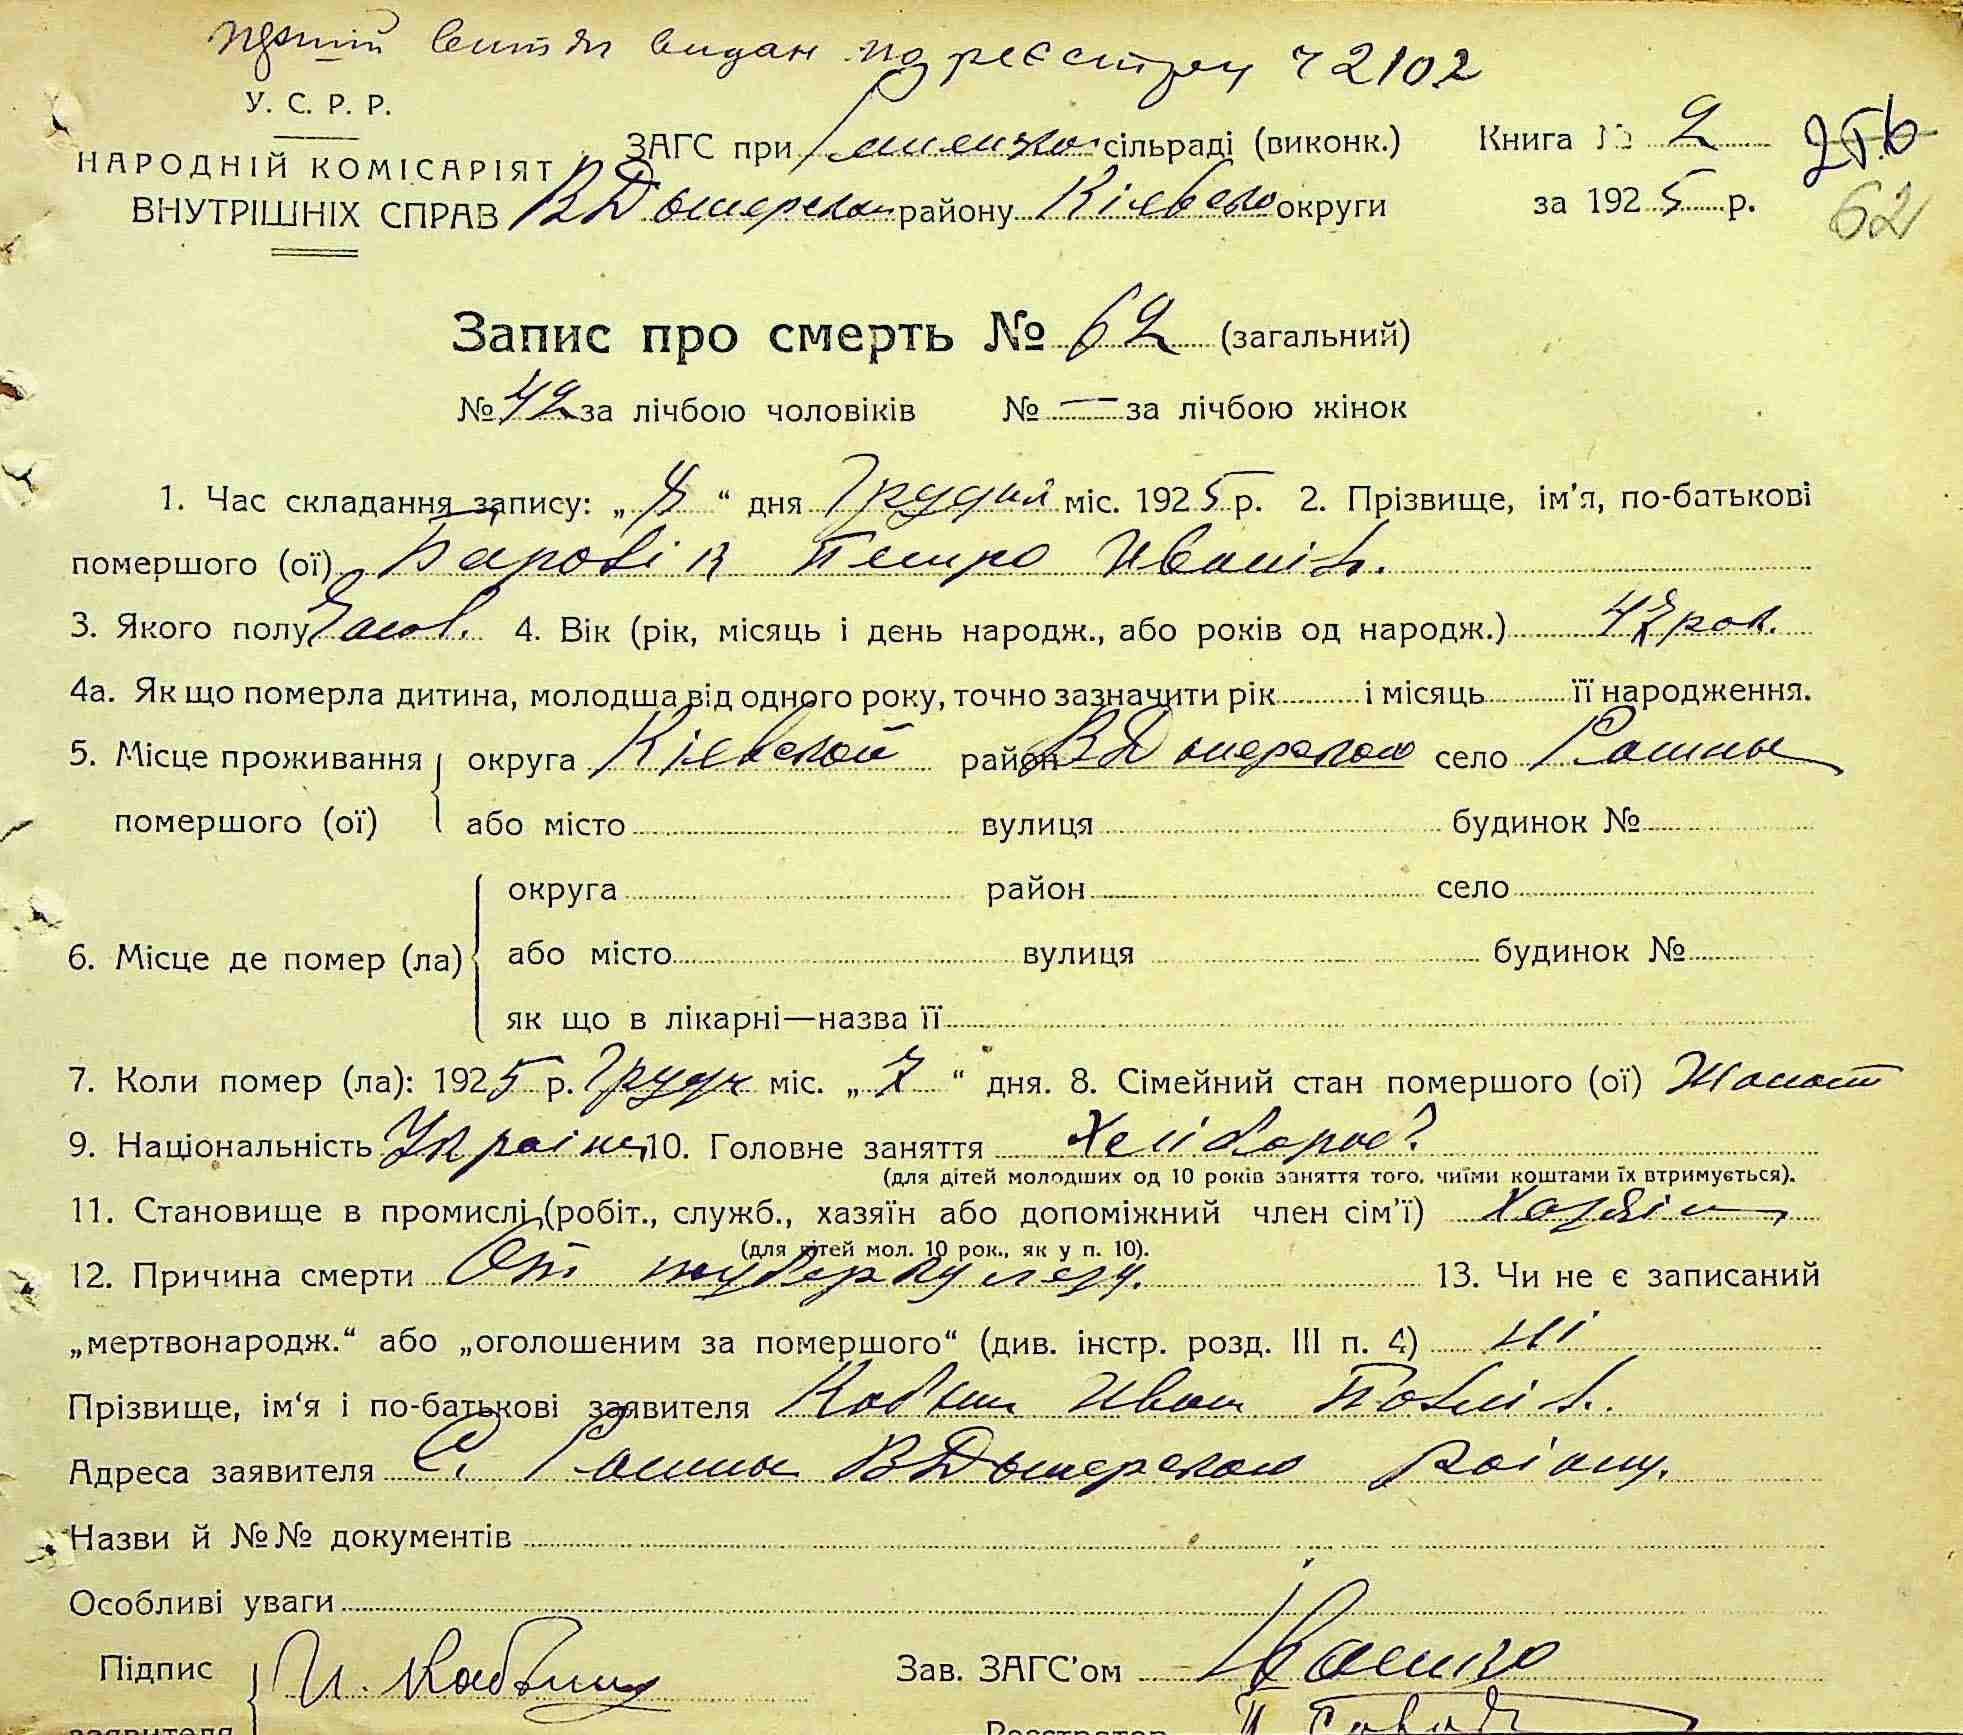 витяг видан по реєстру ч 2102
У. С. Р. Р.
НАРОДНІЙ КОМІСАРІЯТ
ВНУТРІШНІХ СПРАВ
ЗАГС при сільраді (виконк.) Книга № 2
ВДымерском району Кіевско округи за 1925 р.
62
Запис про смерть № 62 (загальний)
№ 42 за лічбою чоловіків № — за лічбою жінок
1. Час складання запису: „ 8 “ дня Грудня міс. 1925 р. 2. Прізвище, ім’я, по-батькові
помершого (ої) Боровік Петро Иванів.
3. Якого полу 4. Вік (рік, місяць і день народж., або років од народж.) рок.
4а. Як що померла дитина, молодша від одного року, точно зазначити рік і місяць її народження.
5. Місце проживання округа Кіевской район ВДымерском село
помершого (ої) або місто вулиця будинок №
округа район село
6. Місце де помер (ла) або місто вулиця будинок №
як що в лікарні—назва її
7. Коли помер (ла): 1925 р. Грудн міс. „ 7 “ дня. 8. Сімейний стан помершого (ої) Жонат
9. Національність Украінец 10. Головне заняття Хліборо́б
(для дітей молодших од 10 років заняття того, чиїми коштами їх втримується).
11. Становище в промислі (робіт., служб., хазяїн або допоміжний член сім’ї) Хозяін
(для дітей мол. 10 рок., як у п. 10).
12. Причина смерти От туберкулезу. 13. Чи не є записаний
„мертвонародж.“ або „оголошеним за помершого“ (див. інстр. розд. III п. 4) ні
Прізвище, ім‘я і по-батькові заявителя Иван Павлів.
Адреса заявителя С. ВДымерскою раіону.
Назви й №№ документів
Особливі уваги
Підпис И. Зав. ЗАГС’ом
заявителя Реєстратор